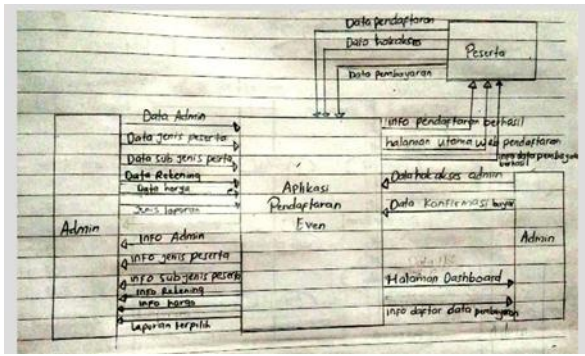 Data pendaftaran
Data hak akses
Data pembayaran
Peserta
Data Admin
Data jenis peserta
Data sub jenis peserta
Data Rekening
Data harga
Jenis laporan
Admin
Info Admin
Info jenis peserta
Info sub jenis peserta
Info Rekening
Info harga
Laporan terpilih
Aplikasi
Pendaftaran
Even
info pendaftaran berhasil
halaman utama web pendaftaran
info data pembayaran
berhasil
Data hak akses admin
Data Konfirmasi bayar
Admin
Halaman Dashboard
info daftar data pembayaran